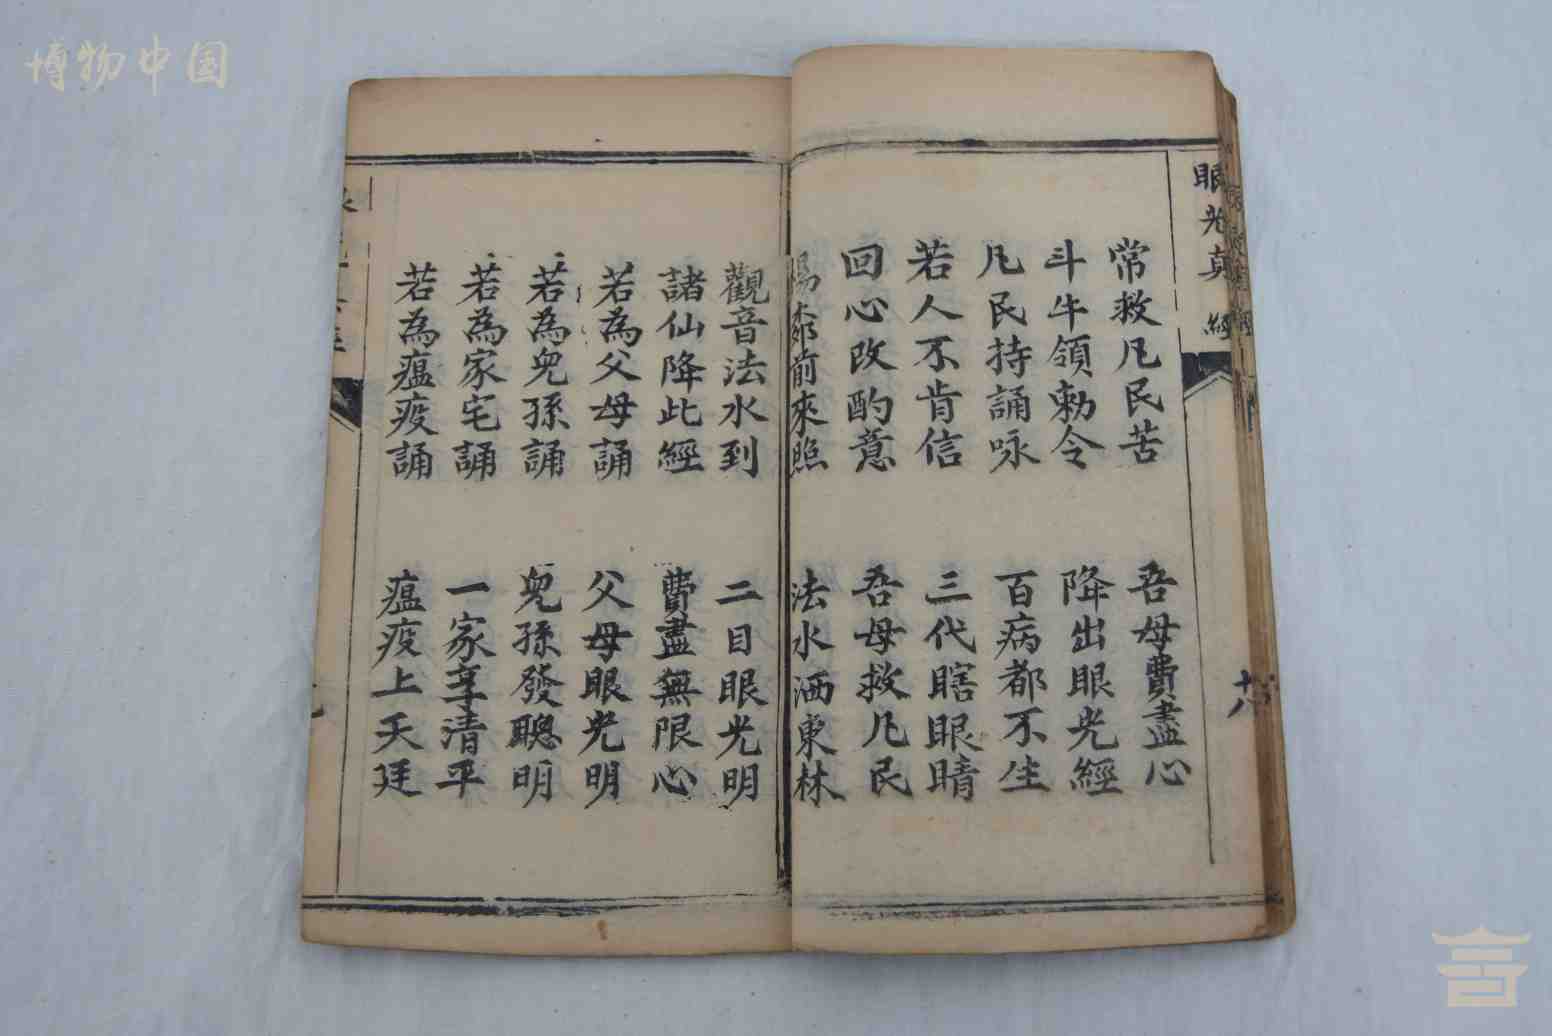 博物中国
眼光真經
十八
常救凡民苦　吾母費盡心
斗牛領勅令　降出眼光經
凡民持誦咏　百病都不生
若人不肯信　三代瞎眼睛
回心改酌意　吾母救凡民
前來照　法水洒東林
觀音法水到　二目眼光明
諸仙降此經　費盡無限心
若為父母誦　父母眼光明
若為兒孫誦　兒孫發聰明
若為家宅誦　一家享清平
若為瘟疫誦　瘟疫上天廷